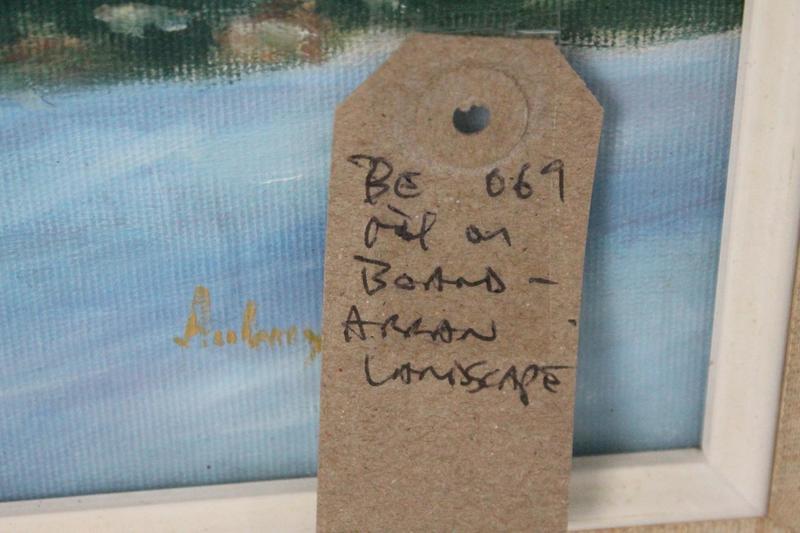 BE 069
oil on
BOARD -
ARRAN
LANDSCAPE